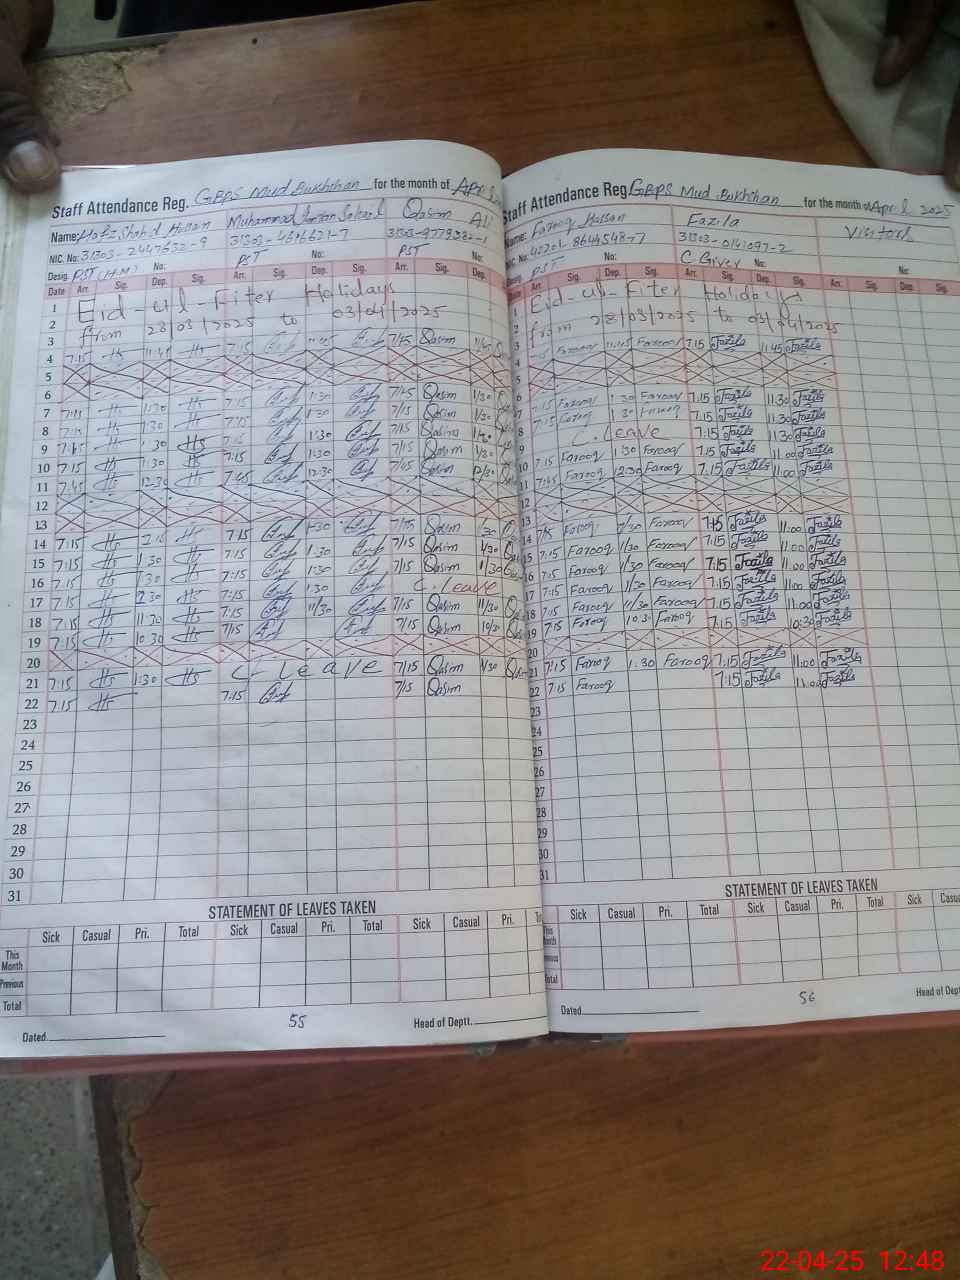 Staff Attendance Reg. GBPS Mud Bukhshan for the month of April
Name: Hafiz Shahid Hassan Muhammad Sohail Qasim Ali
NIC. No: 31303-2447632-9 31303-4616621-7
Desig. PST (H.M) No: PST No: PST No:
Date Arr. Sig. Dep. Sig. Arr. Sig. Dep. Sig. Arr. Sig. Dep.
1 Eid-ul-Fiter Holidays
2 from 28/03/2025 to 03/04/2025
3
4 7:15 Hs 11:45 Hs 7:15 7/45 Qasim
5
6
7 7:15 Hs 1:30 Hs 7:15 1:30 7/45 Qasim 1/30
8 7:15 Hs 1:30 Hs 7:15 1:30 7/15 Qasim 1/30
9 7:15 Hs 1:30 Hs 7:15 1:30 7/15 Qasim 1/30
10 7:15 Hs 1:30 Hs 7:15 1:30 7/15 Qasim 1/30
11 7:45 Hs 12:30 Hs 7:45 12:30 7/45 Qasim 12/30
12
13
14 7:15 Hs Hs 7:15 1:30 7/15 Qasim 1/30
15 7:15 Hs 1:30 Hs 7:15 1:30 7/15 Qasim 1/30
16 7:15 Hs 1:30 Hs 7:15 1:30 7/15 Qasim 1/30
17 7:15 Hs Hs 7:15 1:30 C. leave
18 7:15 Hs 11:30 Hs 7:15 11/30 7/15 Qasim 11/30
19 7:15 Hs 10:30 Hs 7/15 7/15 Qasim 10/30
20
21 7:15 Hs 1:30 Hs C leave 7/15 Qasim 1/30
22 7:15 Hs 7:15 7/15 Qasim
23
24
25
26
27
28
29
30
31
STATEMENT OF LEAVES TAKEN
Sick Casual Pri. Total Sick Casual Pri. Total Sick Casual Pri.
This Month
Previous
Total
Dated. 55 Head of Deptt.
Staff Attendance Reg. GBPS Mud Bukhshan for the month of April 2025
Name: Farooq Hassan Fazila Visitors
NIC. No: 42201-8644548-7 31303-0141097-2
Desig. PST C Giver No: No:
Arr. Sig. Dep. Sig. Arr. Sig. Dep. Sig. Arr. Sig. Dep. Sig.
1 Eid-ul-Fiter Holidays
2 from 28/03/2025 to 03/04/2025
3
4 Farooq 11:45 Farooq 7:15 Fazila 11:45 Fazila
5
6
7 7:15 Farooq 1:30 Farooq 7:15 Fazila 11:30 Fazila
8 7:15 Farooq 1:30 Farooq 7:15 Fazila 11:30 Fazila
9 C. Leave 7:15 Fazila 11:30 Fazila
10 7:15 Farooq 1:30 Farooq 7:15 Fazila 11:00 Fazila
11 7:45 Farooq 12:30 Farooq 7:15 Fazila 11:00 Fazila
12
13
14 7/15 Farooq 1/30 Farooq 7:15 Fazila 11:00 Fazila
15 7:15 Farooq 1/30 Farooq 7:15 Fazila 11:00 Fazila
16 7:15 Farooq 1/30 Farooq 7:15 Fazila 11:00 Fazila
17 7:15 Farooq 1/30 Farooq 7:15 Fazila 11:00 Fazila
18 7:15 Farooq 11/30 Farooq 7:15 Fazila 11:00 Fazila
19 7:15 Farooq 10:30 Farooq 7:15 Fazila 10:30 Fazila
20
21 7:15 Farooq 1:30 Farooq 7:15 Fazila 11:00 Fazila
22 7:15 Farooq 7:15 Fazila 11:00 Fazila
23
24
25
26
27
28
29
30
31
STATEMENT OF LEAVES TAKEN
Sick Casual Pri. Total Sick Casual Pri. Total Sick
Dated. 56 Head of Dept
22-04-25 12:48